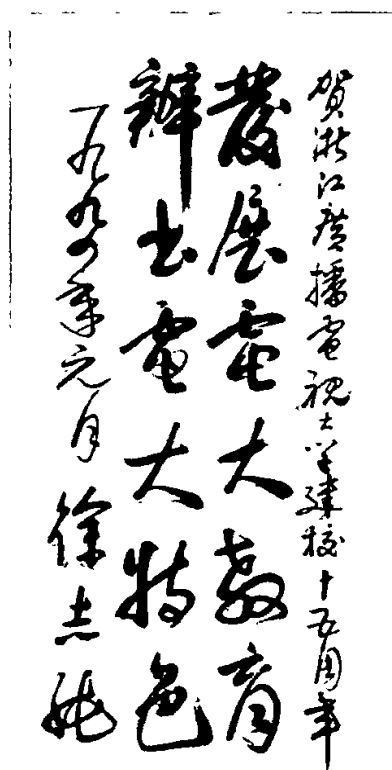 賀浙江廣播電視大学建校十五周年
發展電大教育
辦出電大特色
一九九四年元月 徐志純